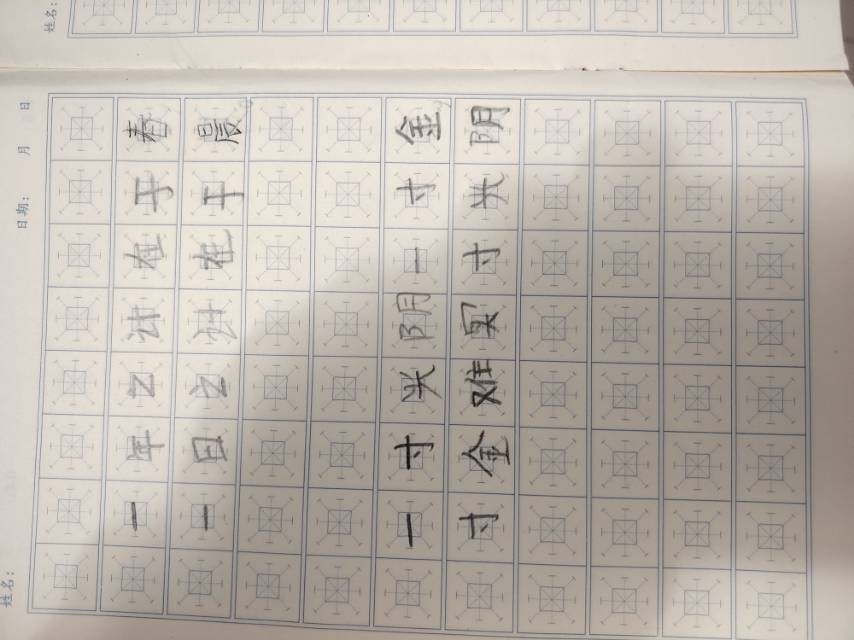 姓名: 日期: 月 日
姓名:
一年之计在于春
一日之计在于晨
一寸光阴一寸金
寸金难买寸光阴